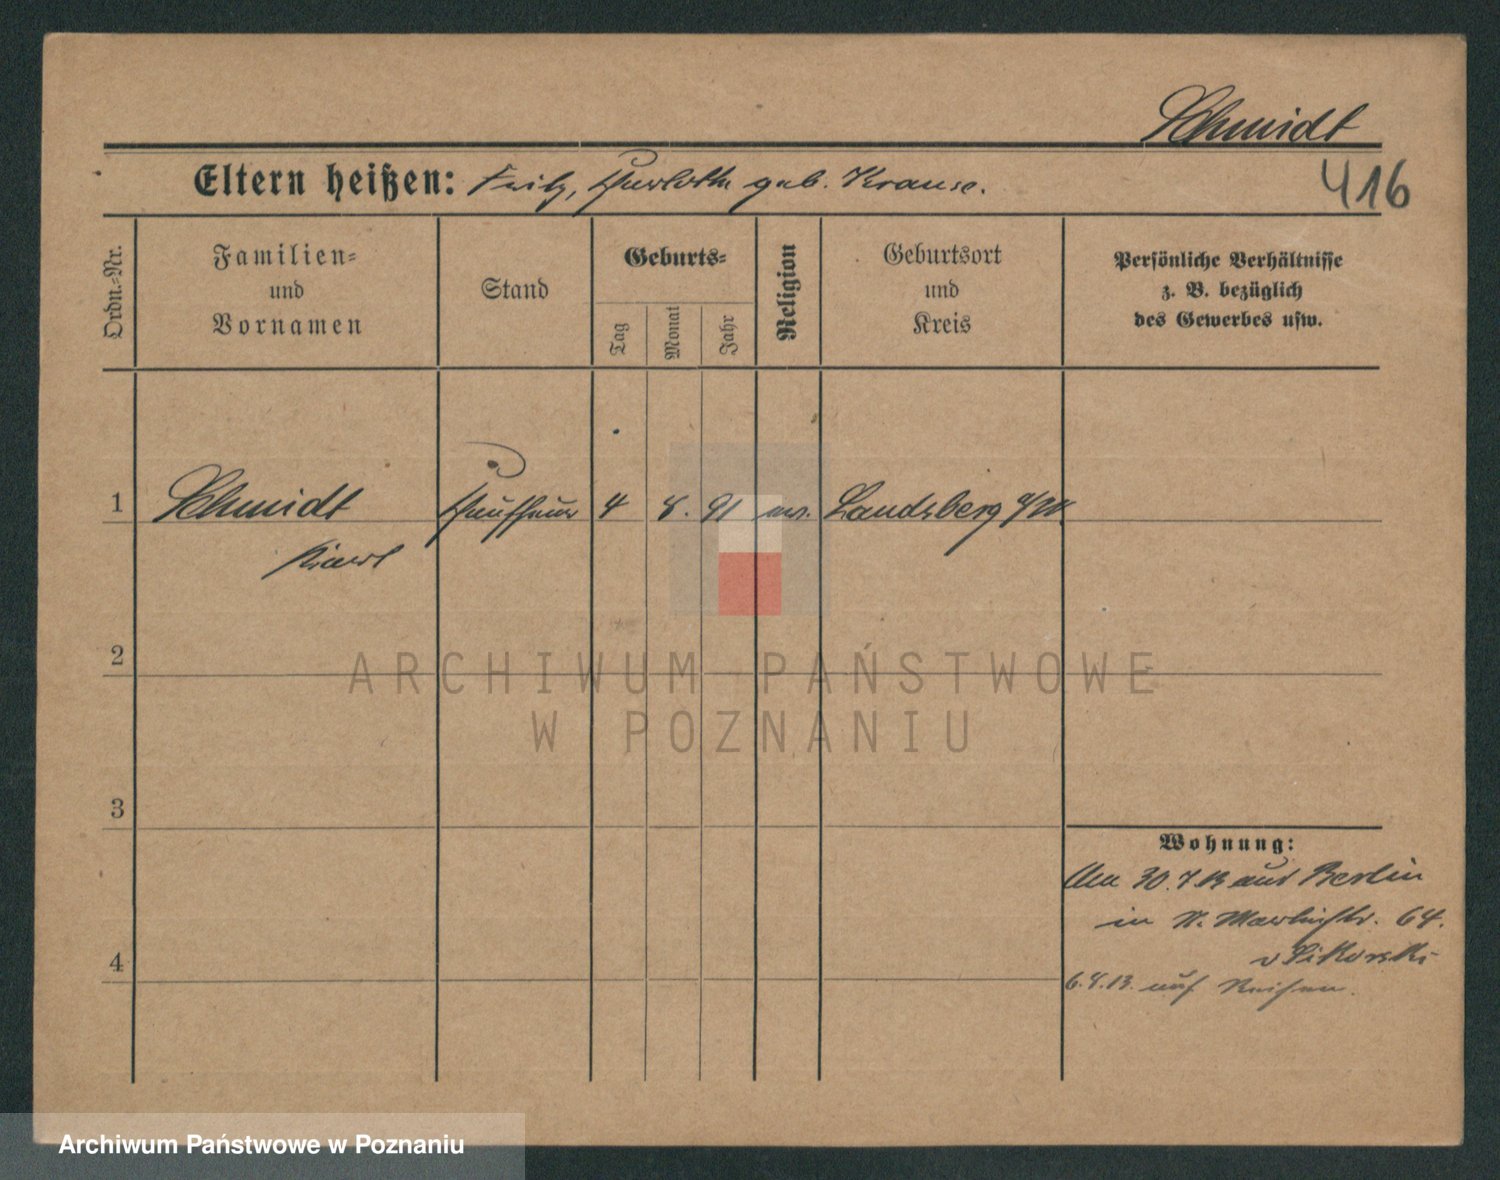 Schmidt
416
Eltern heißen: Fritz, geb. Krause.
Ordn.-Nr.
Familien-
und
Vornamen
Stand
Geburts-
Tag
Monat
Jahr
Religion
Geburtsort
und
Kreis
Persönliche Verhältnisse
z. B. bezüglich
des Gewerbes usw.
1 Schmidt 4 8. 91 ev. Landsberg a/W
Karl
2
3
4
Wohnung:
Am 30.7.13 aus Berlin
in St. Martinstr. 64.
v Sikorski
6.8.13. auf Reisen.
ARCHIWUM PAŃSTWOWE
W POZNANIU
Archiwum Państwowe w Poznaniu